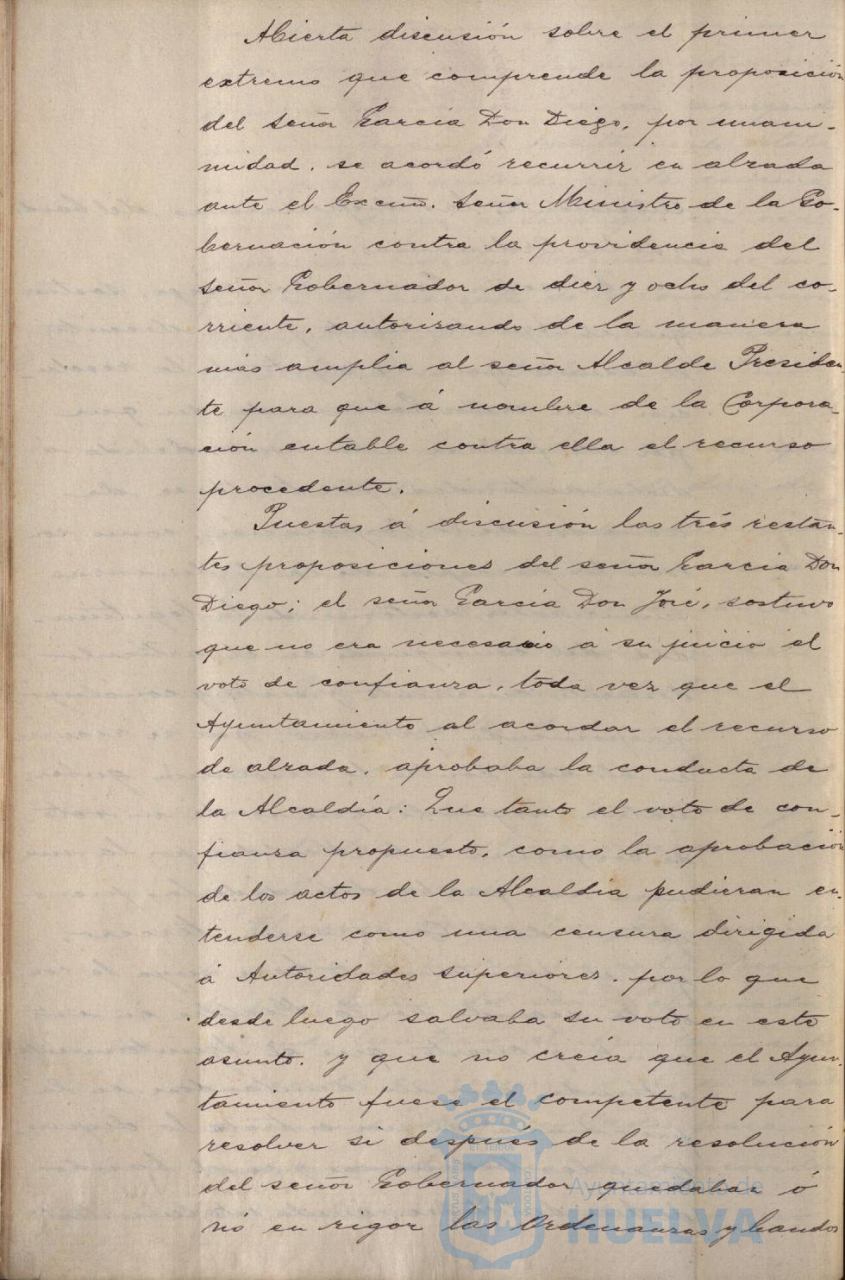 Abierta discusión sobre el primer
extremo que comprende la proposición
del Señor García Don Diego, por unani-
midad, se acordó recurrir en alzada
ante el Excmo. Señor Ministro de la Go-
bernación contra la providencia del
Señor Gobernador de diez y ocho del co-
rriente, autorizando de la manera
más amplia al señor Alcalde Presiden-
te para que á nombre de la Corpora-
ción entable contra ella el recurso
procedente.
Puestas á discusión las trés restan-
tes proposiciones del señor García Don
Diego; el señor García Don José, sostuvo
que no era necesario á su juicio el
voto de confianza, toda vez que el
Ayuntamiento al acordar el recurso
de alzada, aprobaba la conducta de
la Alcaldía: Que tanto el voto de con-
fianza propuesto, como la aprobación
de los actos de la Alcaldía pudieran en-
tenderse como una censura dirigida
á Autoridades superiores, por lo que
desde luego salvaba su voto en este
asunto, y que no creía que el Ayun-
tamiento fuese el competente para
resolver si después de la resolución
del señor Gobernador quedaban ó
nó en rigor las Ordenanzas y bandos
Ayuntamiento de
HUELVA